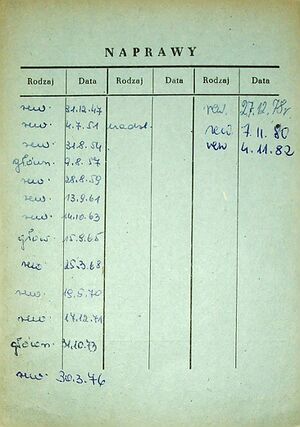 NAPRAWY
Rodzaj Data Rodzaj Data Rodzaj Data
rew. 31.12.47 rew. 27.12.78r
rew. 4.7.51 rew. 7.11.80
rew. 31.8.54 rew 4.11.82
główn. 9.8.57
rew. 28.8.59
rew. 13.9.61
rew. 14.10.63
głów. 15.9.65
rew. 25.3.68
rew. 19.5.70
rew. 17.12.71
główn. 31.10.73
rew. 30.3.76